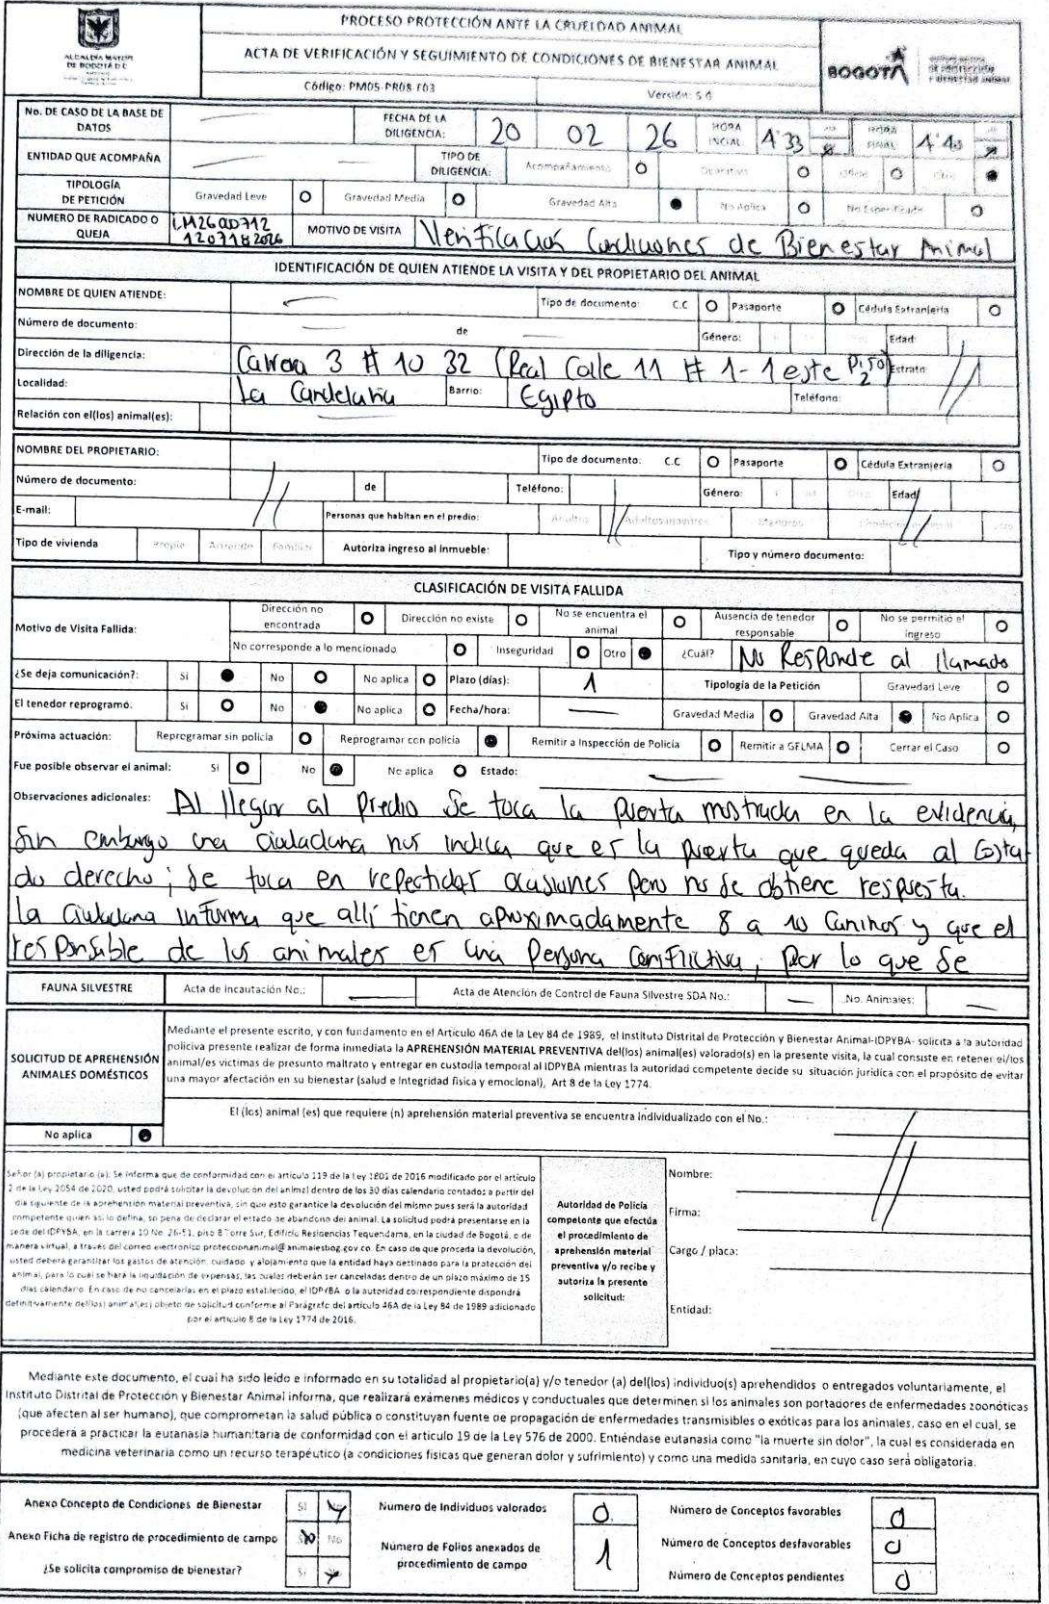 PROCESO PROTECCIÓN ANTE LA CRUELDAD ANIMAL
ALCALDÍA MAYOR
DE BOGOTÁ D.C.
ACTA DE VERIFICACIÓN Y SEGUIMIENTO DE CONDICIONES DE BIENESTAR ANIMAL
BOGOTÁ
Código: PM05-PR08-F03 Versión: 5.0
No. DE CASO DE LA BASE DE DATOS — FECHA DE LA DILIGENCIA: 20 02 26 HORA INICIAL 4:33 HORA FINAL 4:40
ENTIDAD QUE ACOMPAÑA — — TIPO DE DILIGENCIA: Acompañamiento Operativo Oficio Otro
TIPOLOGÍA DE PETICIÓN Gravedad Leve Gravedad Media Gravedad Alta No Aplica No Especificada
NUMERO DE RADICADO O QUEJA 1207182026 MOTIVO DE VISITA Verificación Condiciones de Bienestar Animal
IDENTIFICACIÓN DE QUIEN ATIENDE LA VISITA Y DEL PROPIETARIO DEL ANIMAL
NOMBRE DE QUIEN ATIENDE: — Tipo de documento: C.C Pasaporte Cédula Extranjería
Número de documento: — de — Género: Edad:
Dirección de la diligencia: Carrera 3 # 10 32 (Real Calle 11 # 1-1 este Piso 2) Estrato
Localidad: La Candelaria Barrio: Egipto Teléfono:
Relación con el(los) animal(es): —
NOMBRE DEL PROPIETARIO: Tipo de documento: C.C Pasaporte Cédula Extranjería
Número de documento: de Teléfono: Género: Edad:
E-mail: Personas que habitan en el predio: Adultos Adultos mayores Menores
Tipo de vivienda Propia Arriendo Familiar Autoriza ingreso al inmueble: Tipo y número documento:
CLASIFICACIÓN DE VISITA FALLIDA
Motivo de Visita Fallida: Dirección no encontrada Dirección no existe No se encuentra el animal Ausencia de tenedor responsable No se permitio el ingreso
No corresponde a lo mencionado Inseguridad Otro ¿Cuál? No Responde al llamado
¿Se deja comunicación?: Si No No aplica Plazo (días): 1 Tipología de la Petición Gravedad Leve
El tenedor reprogramó: Si No No aplica Fecha/hora: — Gravedad Media Gravedad Alta No Aplica
Próxima actuación: Reprogramar sin policía Reprogramar con policía Remitir a Inspección de Policía Remitir a GELMA Cerrar el Caso
Fue posible observar el animal: Si No No aplica Estado: — —
Observaciones adicionales: Al llegar al predio se toca la puerta mostrada en la evidencia,
sin embargo una ciudadana nos indica que es la puerta que queda al Costa
do derecho; se toca en repectidas ocasiones pero no se obtiene respuesta.
la ciudadana informa que allí tienen aproximadamente 8 a 10 caninos y que el
responsable de los animales es una persona conflictiva, por lo que se
FAUNA SILVESTRE Acta de Incautación No.: — Acta de Atención de Control de Fauna Silvestre SDA No.: — No. Animales: —
Mediante el presente escrito, y con fundamento en el Articulo 46A de la Ley 84 de 1989, el Instituto Distrital de Protección y Bienestar Animal-IDPYBA- solicita a la autoridad
policiva presente realizar de forma inmediata la APREHENSIÓN MATERIAL PREVENTIVA del(los) animal(es) valorado(s) en la presente visita, la cual consiste en retener el/los
SOLICITUD DE APREHENSIÓN ANIMALES DOMÉSTICOS
animal/es victimas de presunto maltrato y entregar en custodia temporal al IDPYBA mientras la autoridad competente decide su situación jurídica con el propósito de evitar
una mayor afectación en su bienestar (salud e Integridad física y emocional), Art 8 de la Ley 1774.
El (los) animal (es) que requiere (n) aprehensión material preventiva se encuentra individualizado con el No.:
No aplica
Señor (a) propietario (a): Se informa que de conformidad con el artículo 119 de la Ley 1801 de 2016 modificado por el artículo
2 de la Ley 2054 de 2020, usted podrá solicitar la devolución del animal dentro de los 30 días calendario contados a partir del
día siguiente de la aprehensión material preventiva, sin que esto garantice la devolución del mismo pues será la autoridad
competente quien así lo defina, so pena de declarar el estado de abandono del animal. La solicitud podrá presentarse en la
sede del IDPYBA, en la carrera 10 No. 26-51, piso 8 Torre Sur, Edificio Residencias Tequendama, en la ciudad de Bogotá, o de
manera virtual, a través del correo electrónico proteccionanimal@animalesbog.gov.co. En caso de que proceda la devolución,
usted deberá garantizar los gastos de atención, cuidado y alojamiento que la entidad haya destinado para la protección del
animal, para lo cual se hará la liquidación de expensas, las cuales deberán ser canceladas dentro de un plazo máximo de 15
días calendario. En caso de no cancelarlas en el plazo establecido, el IDPYBA o la autoridad correspondiente dispondrá
definitivamente del(los) animal(es) objeto de solicitud conforme al Parágrafo del artículo 46A de la Ley 84 de 1989 adicionado
por el artículo 8 de la Ley 1774 de 2016.
Autoridad de Policía
competente que efectúa
el procedimiento de
aprehensión material
preventiva y/o recibe y
autoriza la presente
solicitud:
Nombre:
Firma:
Cargo / placa:
Entidad:
Mediante este documento, el cual ha sido leído e informado en su totalidad al propietario(a) y/o tenedor (a) del(los) individuo(s) aprehendidos o entregados voluntariamente, el
Instituto Distrital de Protección y Bienestar Animal informa, que realizará exámenes médicos y conductuales que determinen si los animales son portadores de enfermedades zoonóticas
(que afecten al ser humano), que comprometan la salud pública o constituyan fuente de propagación de enfermedades transmisibles o exóticas para los animales, caso en el cual, se
procederá a practicar la eutanasia humanitaria de conformidad con el articulo 19 de la Ley 576 de 2000. Entiéndase eutanasia como "la muerte sin dolor", la cual es considerada en
medicina veterinaria como un recurso terapéutico (a condiciones físicas que generan dolor y sufrimiento) y como una medida sanitaria, en cuyo caso será obligatoria.
Anexo Concepto de Condiciones de Bienestar Si Número de Individuos valorados 0 Número de Conceptos favorables 0
Anexo Ficha de registro de procedimiento de campo No Número de Folios anexados de procedimiento de campo 1 Número de Conceptos desfavorables 0
¿Se solicita compromiso de bienestar? Si Número de Conceptos pendientes 0